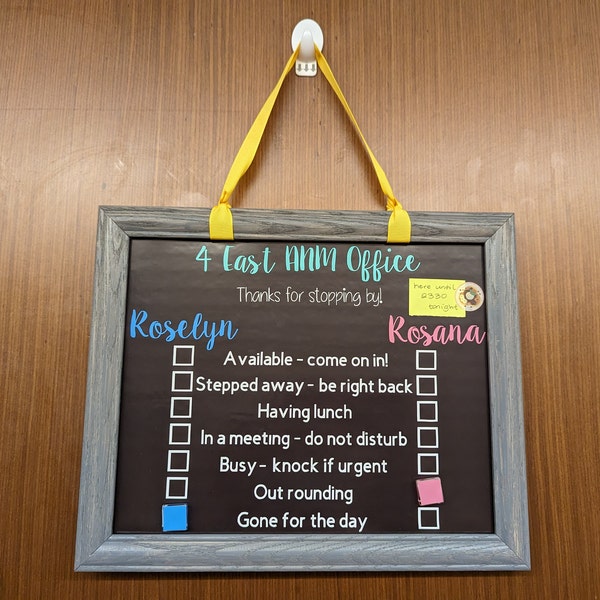 4 East ANM Office
Thanks for stopping by!
here until
2330
tonight
Roselyn
Rosana
Available - come on in!
Stepped away - be right back
Having lunch
In a meeting - do not disturb
Busy - knock if urgent
Out rounding
Gone for the day